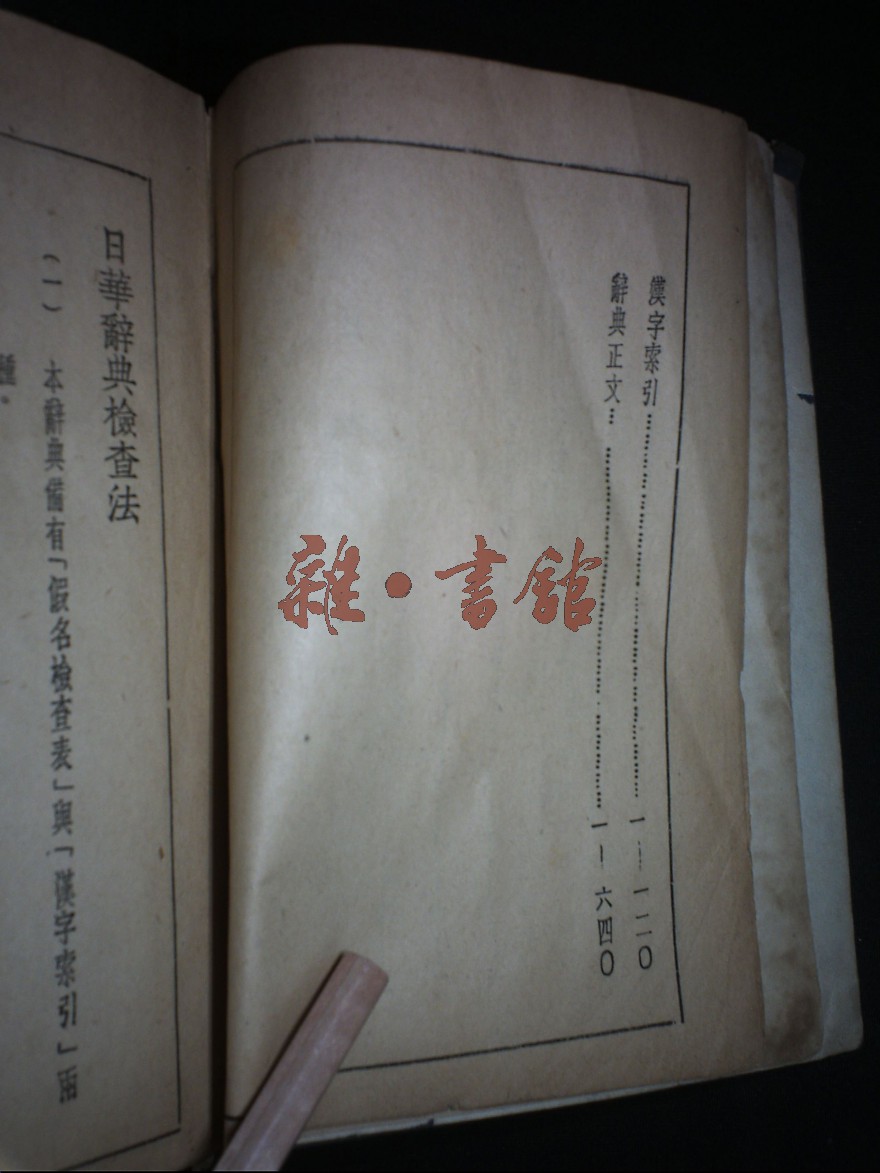 漢字索引……………………一—一二〇
辭典正文……………………一—六四〇
日華辭典檢查法
(一) 本辭典備有「假名檢查表」與「漢字索引」兩
種。
雜·書館